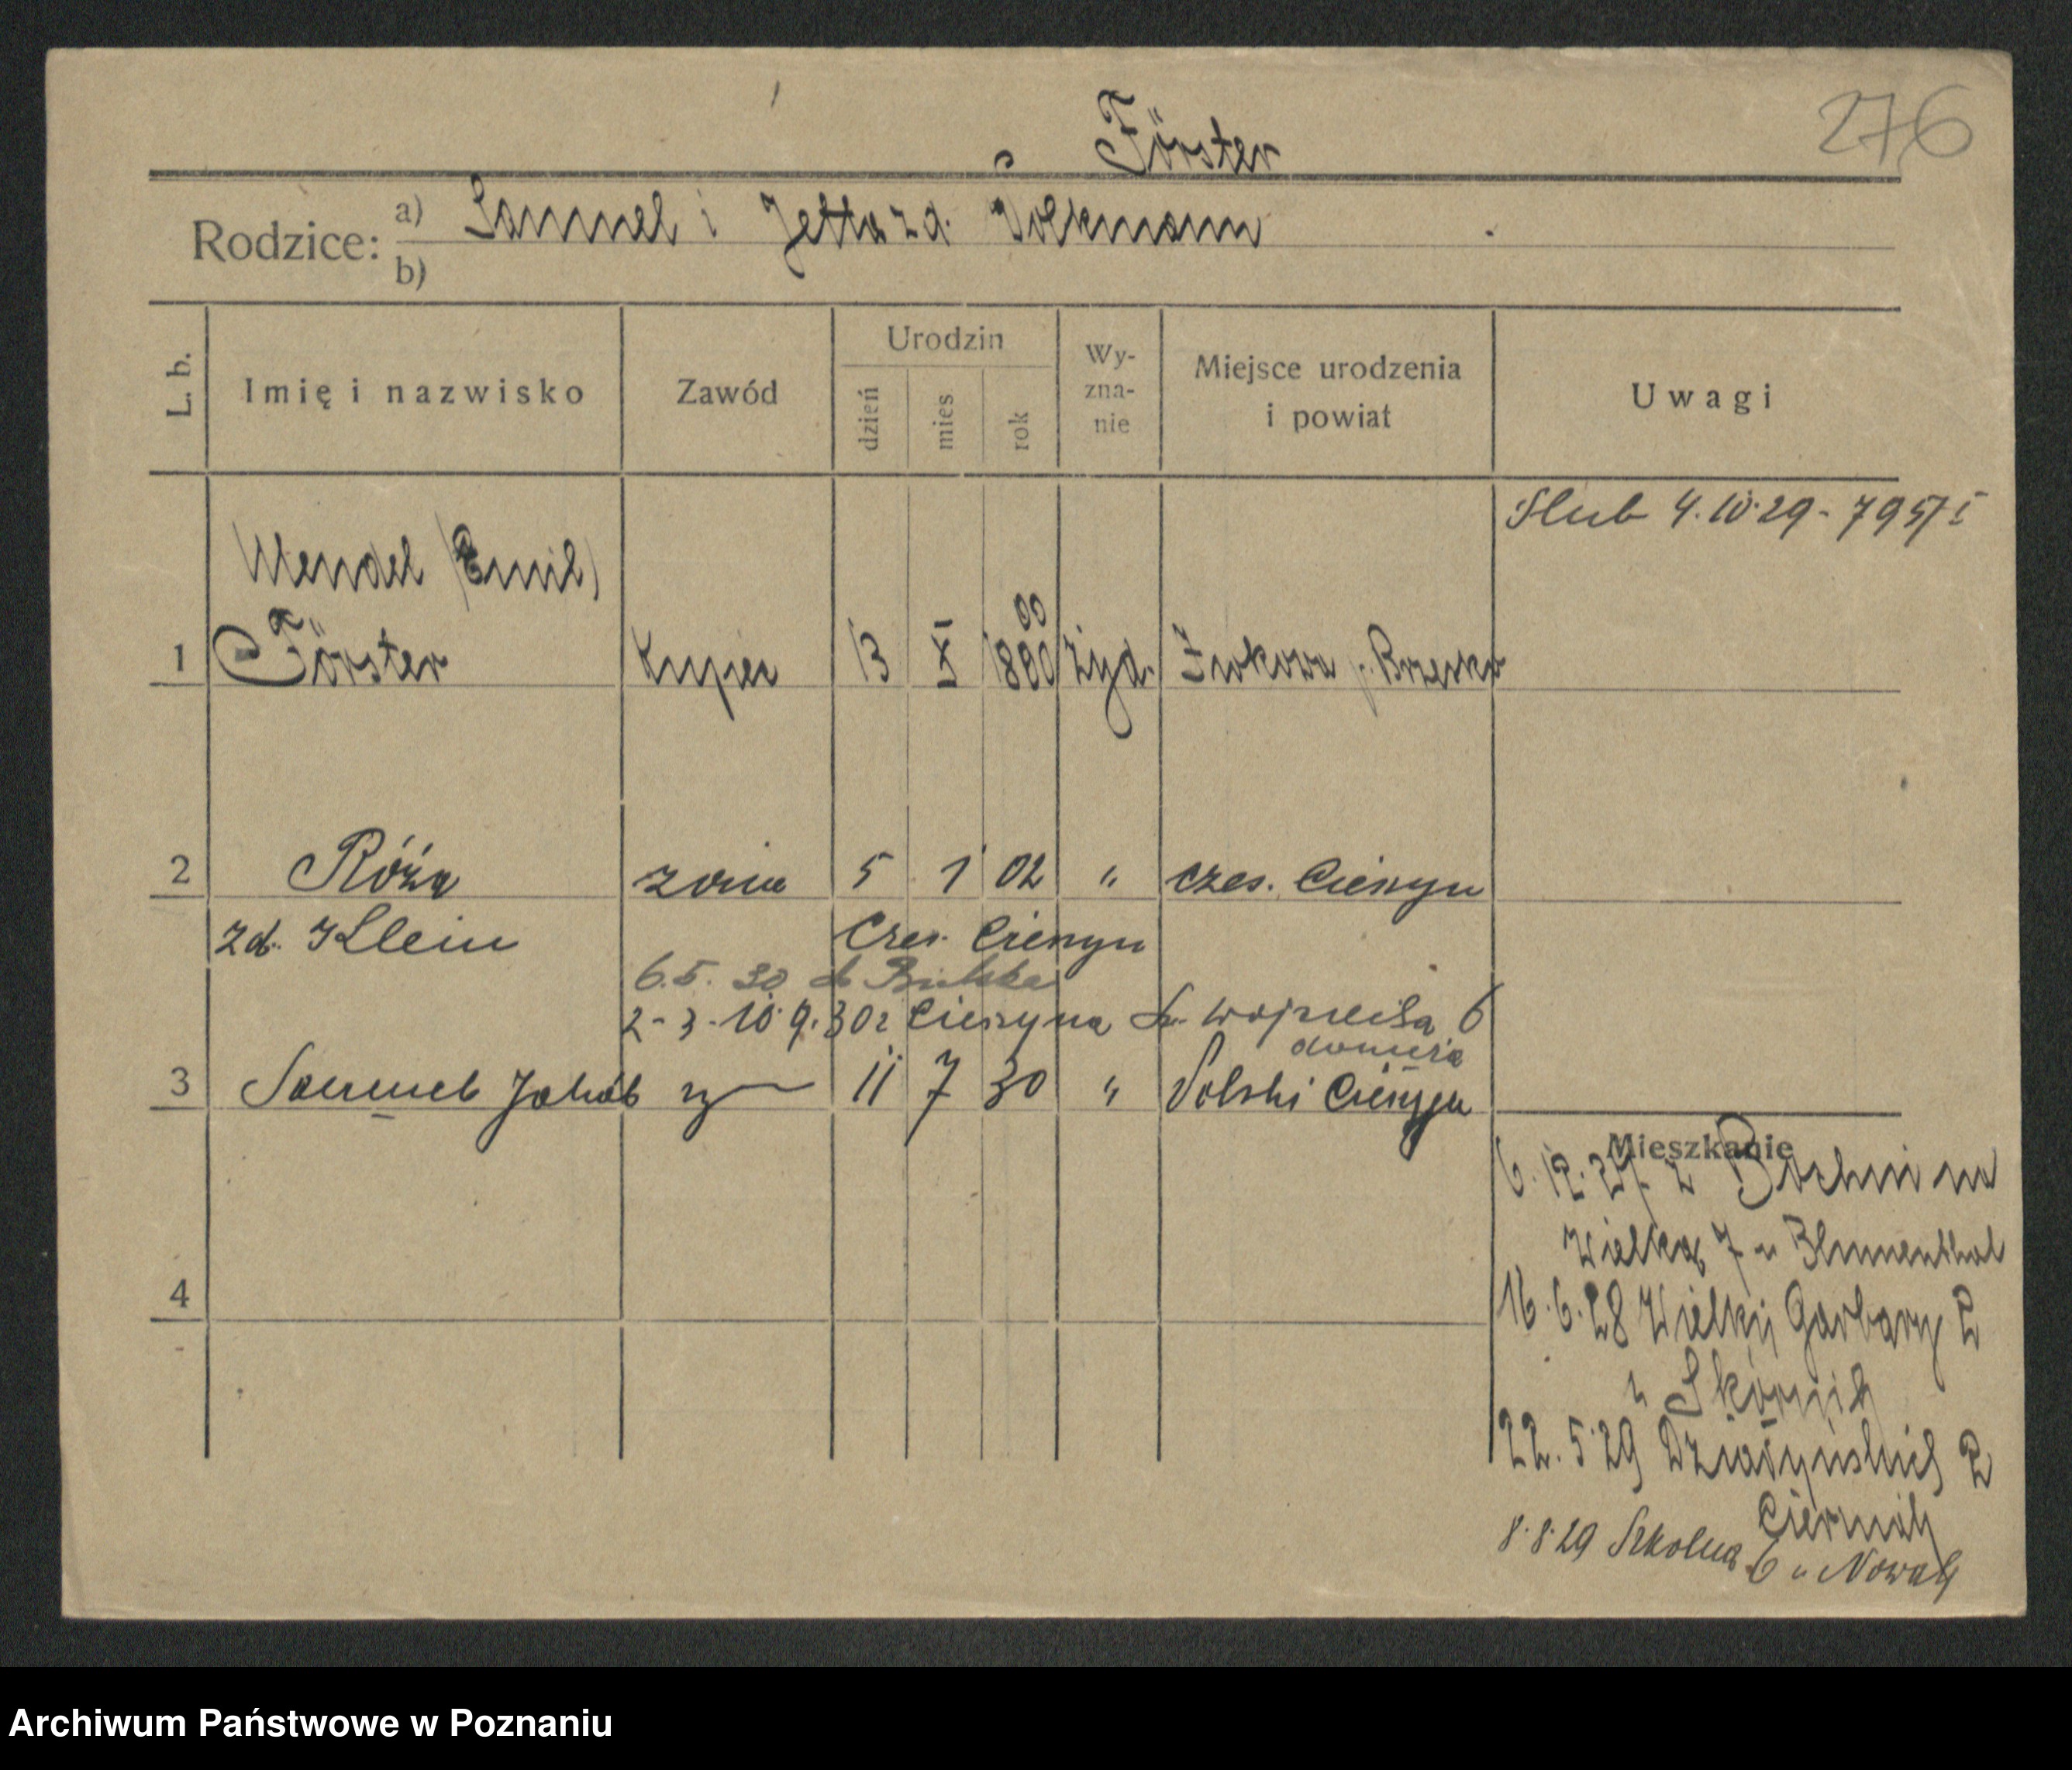 276
Förster
Rodzice: a) Samuel i Jetta zd. Volkmann
b)
L. b.
Imię i nazwisko
Zawód
Urodzin
dzień
mies
rok
Wy-
zna-
nie
Miejsce urodzenia
i powiat
Uwagi
Ślub 4.10.29 -
Mendel (Emil)
00
1 Förster Kupiec 13 XI 1880 żyd. p. Brzesko
2 Róża żona 5 1 02 " czes. Cieszyn
zd. Klein Czes. Cieszyn
6.5.30 do Bielska
2-3-10.9.30 z Cieszyna Św. Wojciecha 6
3 Samuel Jakób sy 11 7 30 " Polski Cieszyn
Mieszkanie
6.12.27 z Bochni na
Wielką 7 u Blumenthal
4
16.6.28 Wielkie Garbary 2
u
22.5.29 Działyńskich 2
8.8.29 Szkolna 6 u Nowak
Archiwum Państwowe w Poznaniu